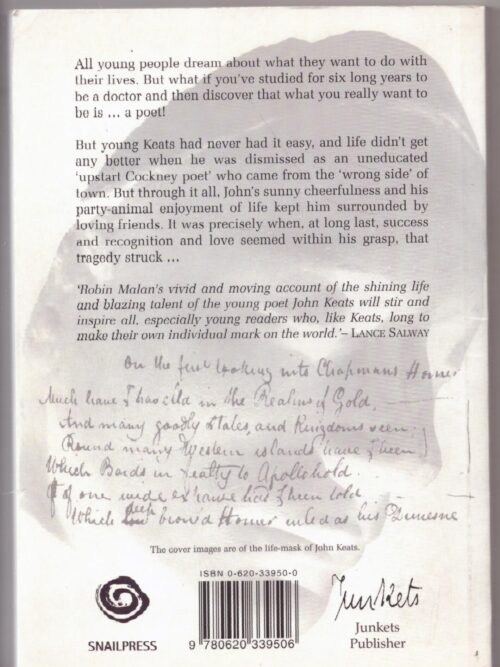 All young people dream about what they want to do with
their lives. But what if you've studied for six long years to
be a doctor and then discover that what you really want to
be is ... a poet!
But young Keats had never had it easy, and life didn't get
any better when he was dismissed as an uneducated
'upstart Cockney poet' who came from the 'wrong side' of
town. But through it all, John's sunny cheerfulness and his
party-animal enjoyment of life kept him surrounded by
loving friends. It was precisely when, at long last, success
and recognition and love seemed within his grasp, that
tragedy struck ...
'Robin Malan's vivid and moving account of the shining life
and blazing talent of the young poet John Keats will stir and
inspire all, especially young readers who, like Keats, long to
make their own individual mark on the world.'– LANCE SALWAY
On the first looking into Chapman's Homer
Much have I travell'd in the Realms of Gold,
And many goodly States, and Kingdoms seen;
Round many Western islands have I been,
Which Bards in fealty to Apollo hold.
Of one wide expanse had I been told,
Which deep brow'd Homer ruled as his Demesne
The cover images are of the life-mask of John Keats.
SNAILPRESS
ISBN 0-620-33950-0
9 780620 339506
Junkets
Junkets
Publisher